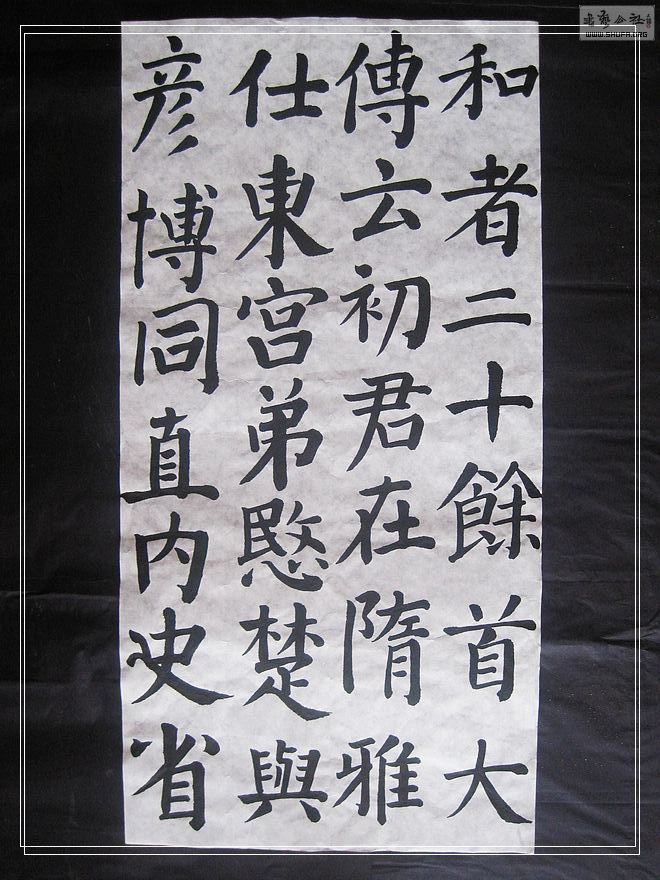 和者二十餘首大
傳云初君在隋雅
仕東宮弟愍楚與
彦博同直内史省
書藝公社
WWW.SHUFA.ORG